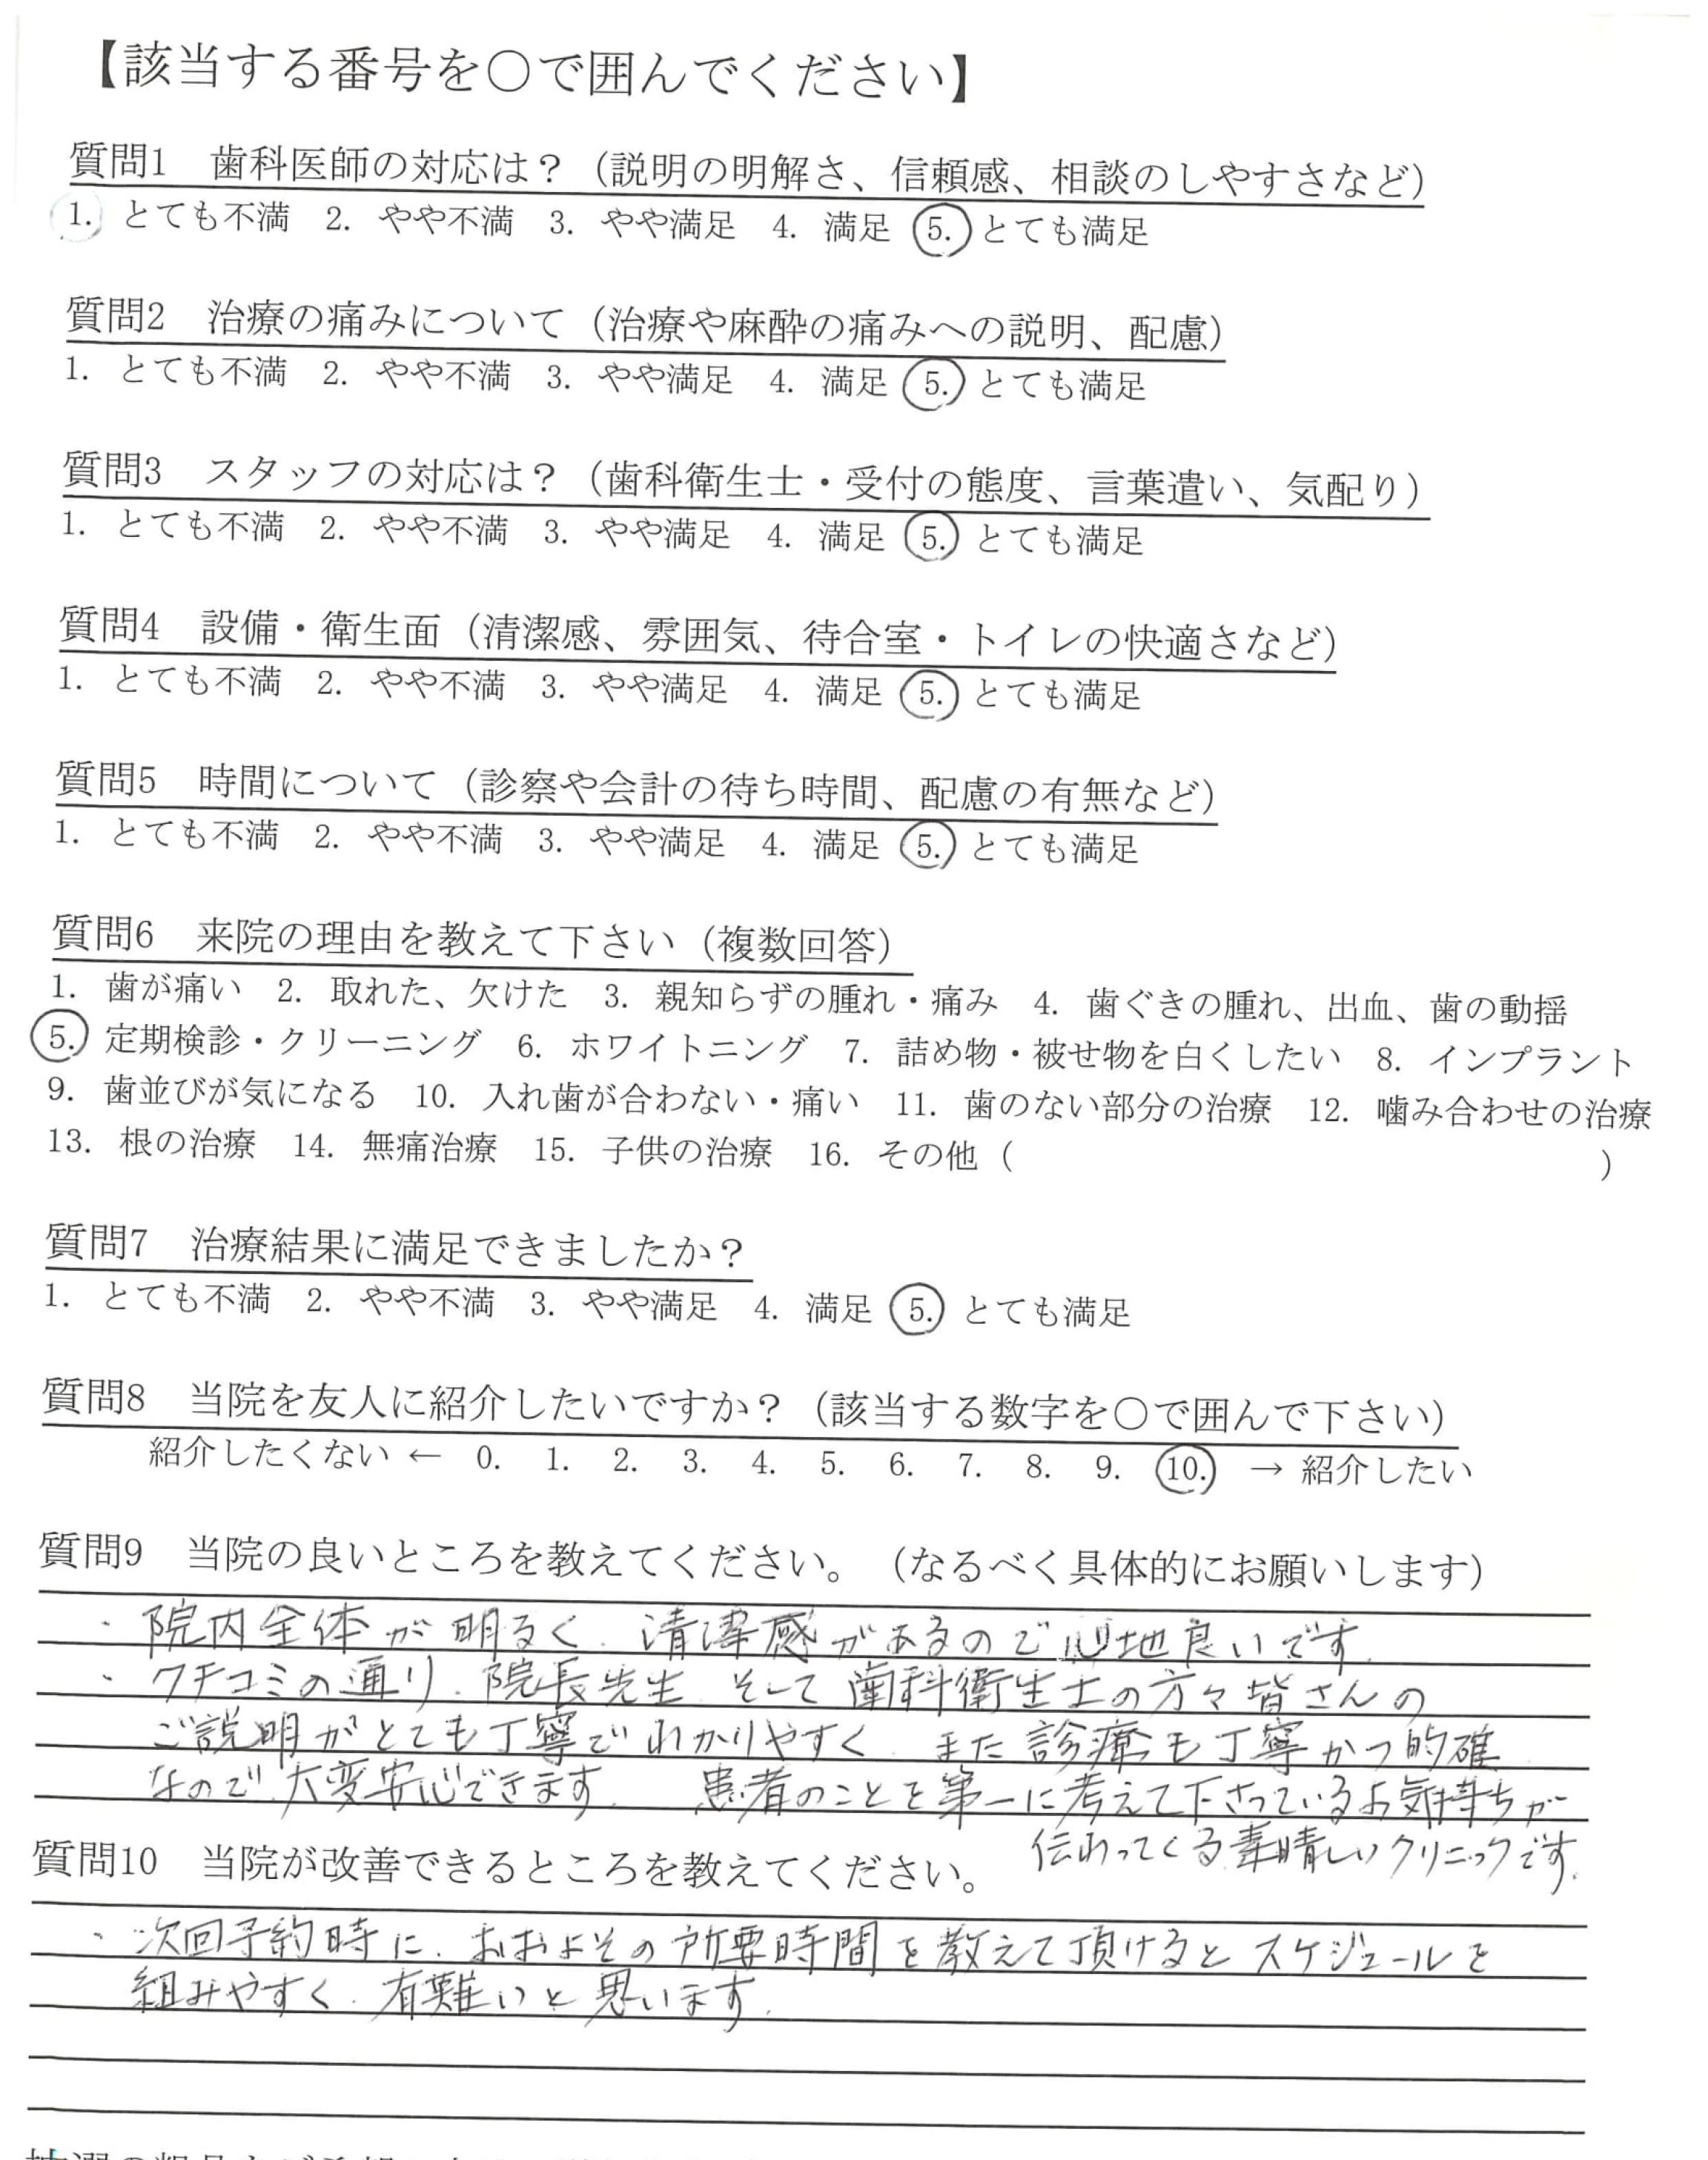 【該当する番号を○で囲んでください】
質問1 歯科医師の対応は？（説明の明解さ、信頼感、相談のしやすさなど）
1. とても不満 2. やや不満 3. やや満足 4. 満足 5. とても満足
質問2 治療の痛みについて（治療や麻酔の痛みへの説明、配慮）
1. とても不満 2. やや不満 3. やや満足 4. 満足 5. とても満足
質問3 スタッフの対応は？（歯科衛生士・受付の態度、言葉遣い、気配り）
1. とても不満 2. やや不満 3. やや満足 4. 満足 5. とても満足
質問4 設備・衛生面（清潔感、雰囲気、待合室・トイレの快適さなど）
1. とても不満 2. やや不満 3. やや満足 4. 満足 5. とても満足
質問5 時間について（診察や会計の待ち時間、配慮の有無など）
1. とても不満 2. やや不満 3. やや満足 4. 満足 5. とても満足
質問6 来院の理由を教えて下さい（複数回答）
1. 歯が痛い 2. 取れた、欠けた 3. 親知らずの腫れ・痛み 4. 歯ぐきの腫れ、出血、歯の動揺
5. 定期検診・クリーニング 6. ホワイトニング 7. 詰め物・被せ物を白くしたい 8. インプラント
9. 歯並びが気になる 10. 入れ歯が合わない・痛い 11. 歯のない部分の治療 12. 噛み合わせの治療
13. 根の治療 14. 無痛治療 15. 子供の治療 16. その他（ ）
質問7 治療結果に満足できましたか？
1. とても不満 2. やや不満 3. やや満足 4. 満足 5. とても満足
質問8 当院を友人に紹介したいですか？（該当する数字を○で囲んで下さい）
紹介したくない ← 0. 1. 2. 3. 4. 5. 6. 7. 8. 9. 10. → 紹介したい
質問9 当院の良いところを教えてください。（なるべく具体的にお願いします）
・院内全体が明るく、清潔感があるので心地良いです。
・クチコミの通り、院長先生、そして歯科衛生士の方々皆さんの
ご説明がとても丁寧でわかりやすく、また診療も丁寧かつ的確
なので、大変安心できます。 患者のことを第一に考えて下さっているお気持ちが
伝わってくる素晴しいクリニックです。
質問10 当院が改善できるところを教えてください。
・次回予約時に、おおよその所要時間を教えて頂けるとスケジュールを
組みやすく、有難いと思います。